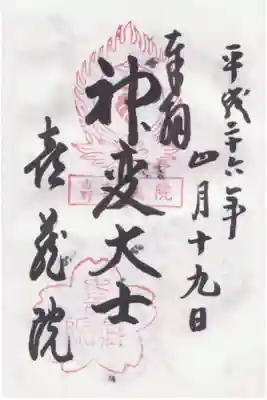 平成二十六年
四月十九日
奉拝
神変大士
喜蔵院